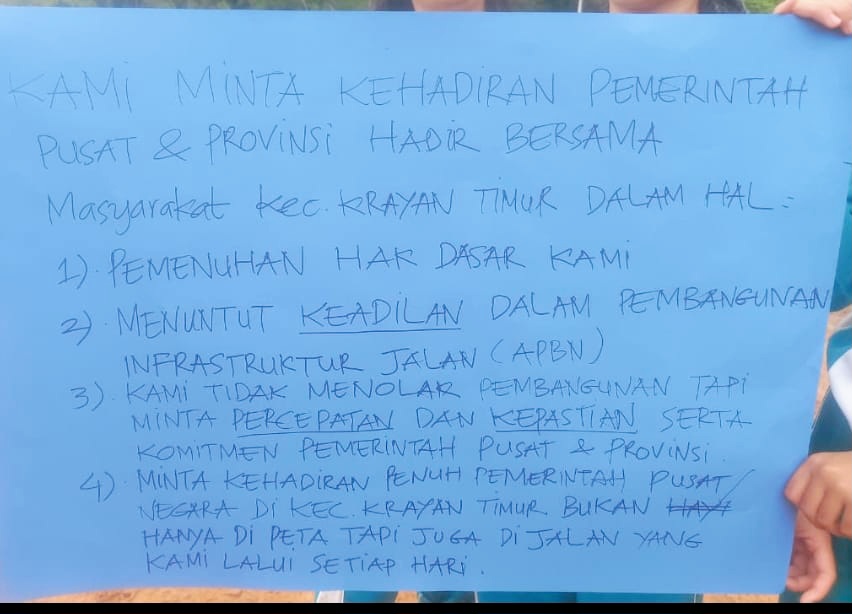 KAMI MINTA KEHADIRAN PEMERINTAH
PUSAT & PROVINSI HADIR BERSAMA
Masyarakat Kec. KRAYAN TIMUR DALAM HAL :
1). PEMENUHAN HAK DASAR KAMI
2). MENUNTUT KEADILAN DALAM PEMBANGUNAN
INFRASTRUKTUR JALAN (APBN)
3). KAMI TIDAK MENOLAK PEMBANGUNAN TAPI
MINTA PERCEPATAN DAN KEPASTIAN SERTA
KOMITMEN PEMERINTAH PUSAT & PROVINSI.
4) MINTA KEHADIRAN PENUH PEMERINTAH PUSAT/
NEGARA DI KEC. KRAYAN TIMUR BUKAN
HANYA DI PETA TAPI JUGA DI JALAN YANG
KAMI LALUI SETIAP HARI.